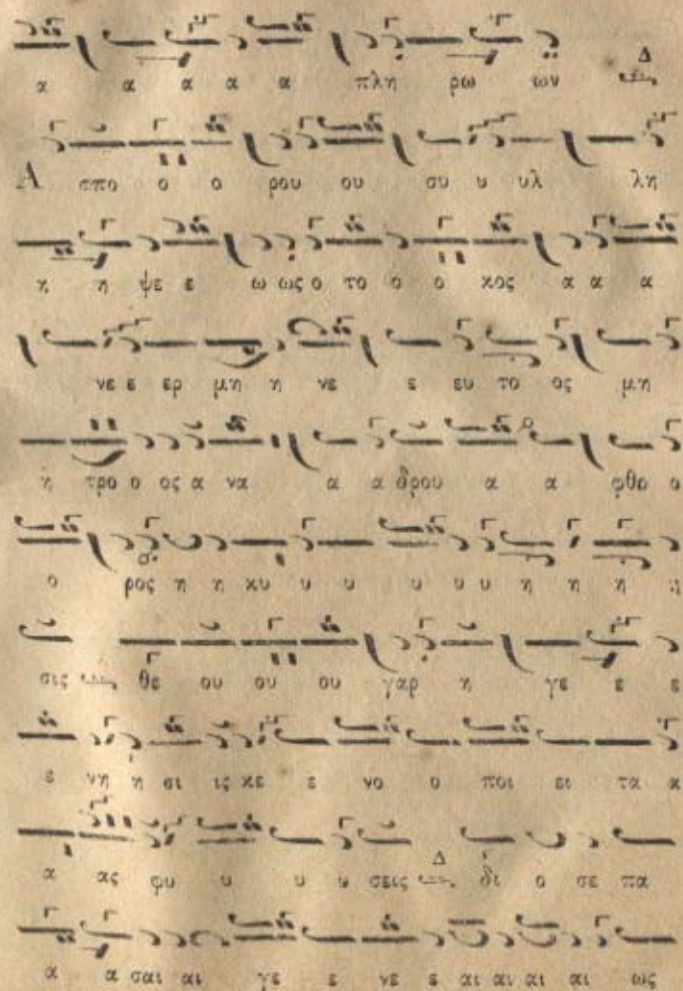 α α α α α πλη ρω ων Δ
Α σπο ο ο ο ρου ου συ υ υλ λη
η η ψε ε ω ως ο το ο ο κος α α α
νε ε ερ μη η νε ε ευ το ος μη
η τρο ο ος α να α α δρου α α φθο ο
ο ρος η η κυ υ υ υ υ υ υ η η η η
σις θε ου ου ου γαρ η γε ε ε
ε νη η σι ις κε ε νο ο ποι ει τα α
α ας φυ υ υ υ σεις Δ δι ο σε πα
α α σαι αι γε ε νε ε αι αι αι αι ως